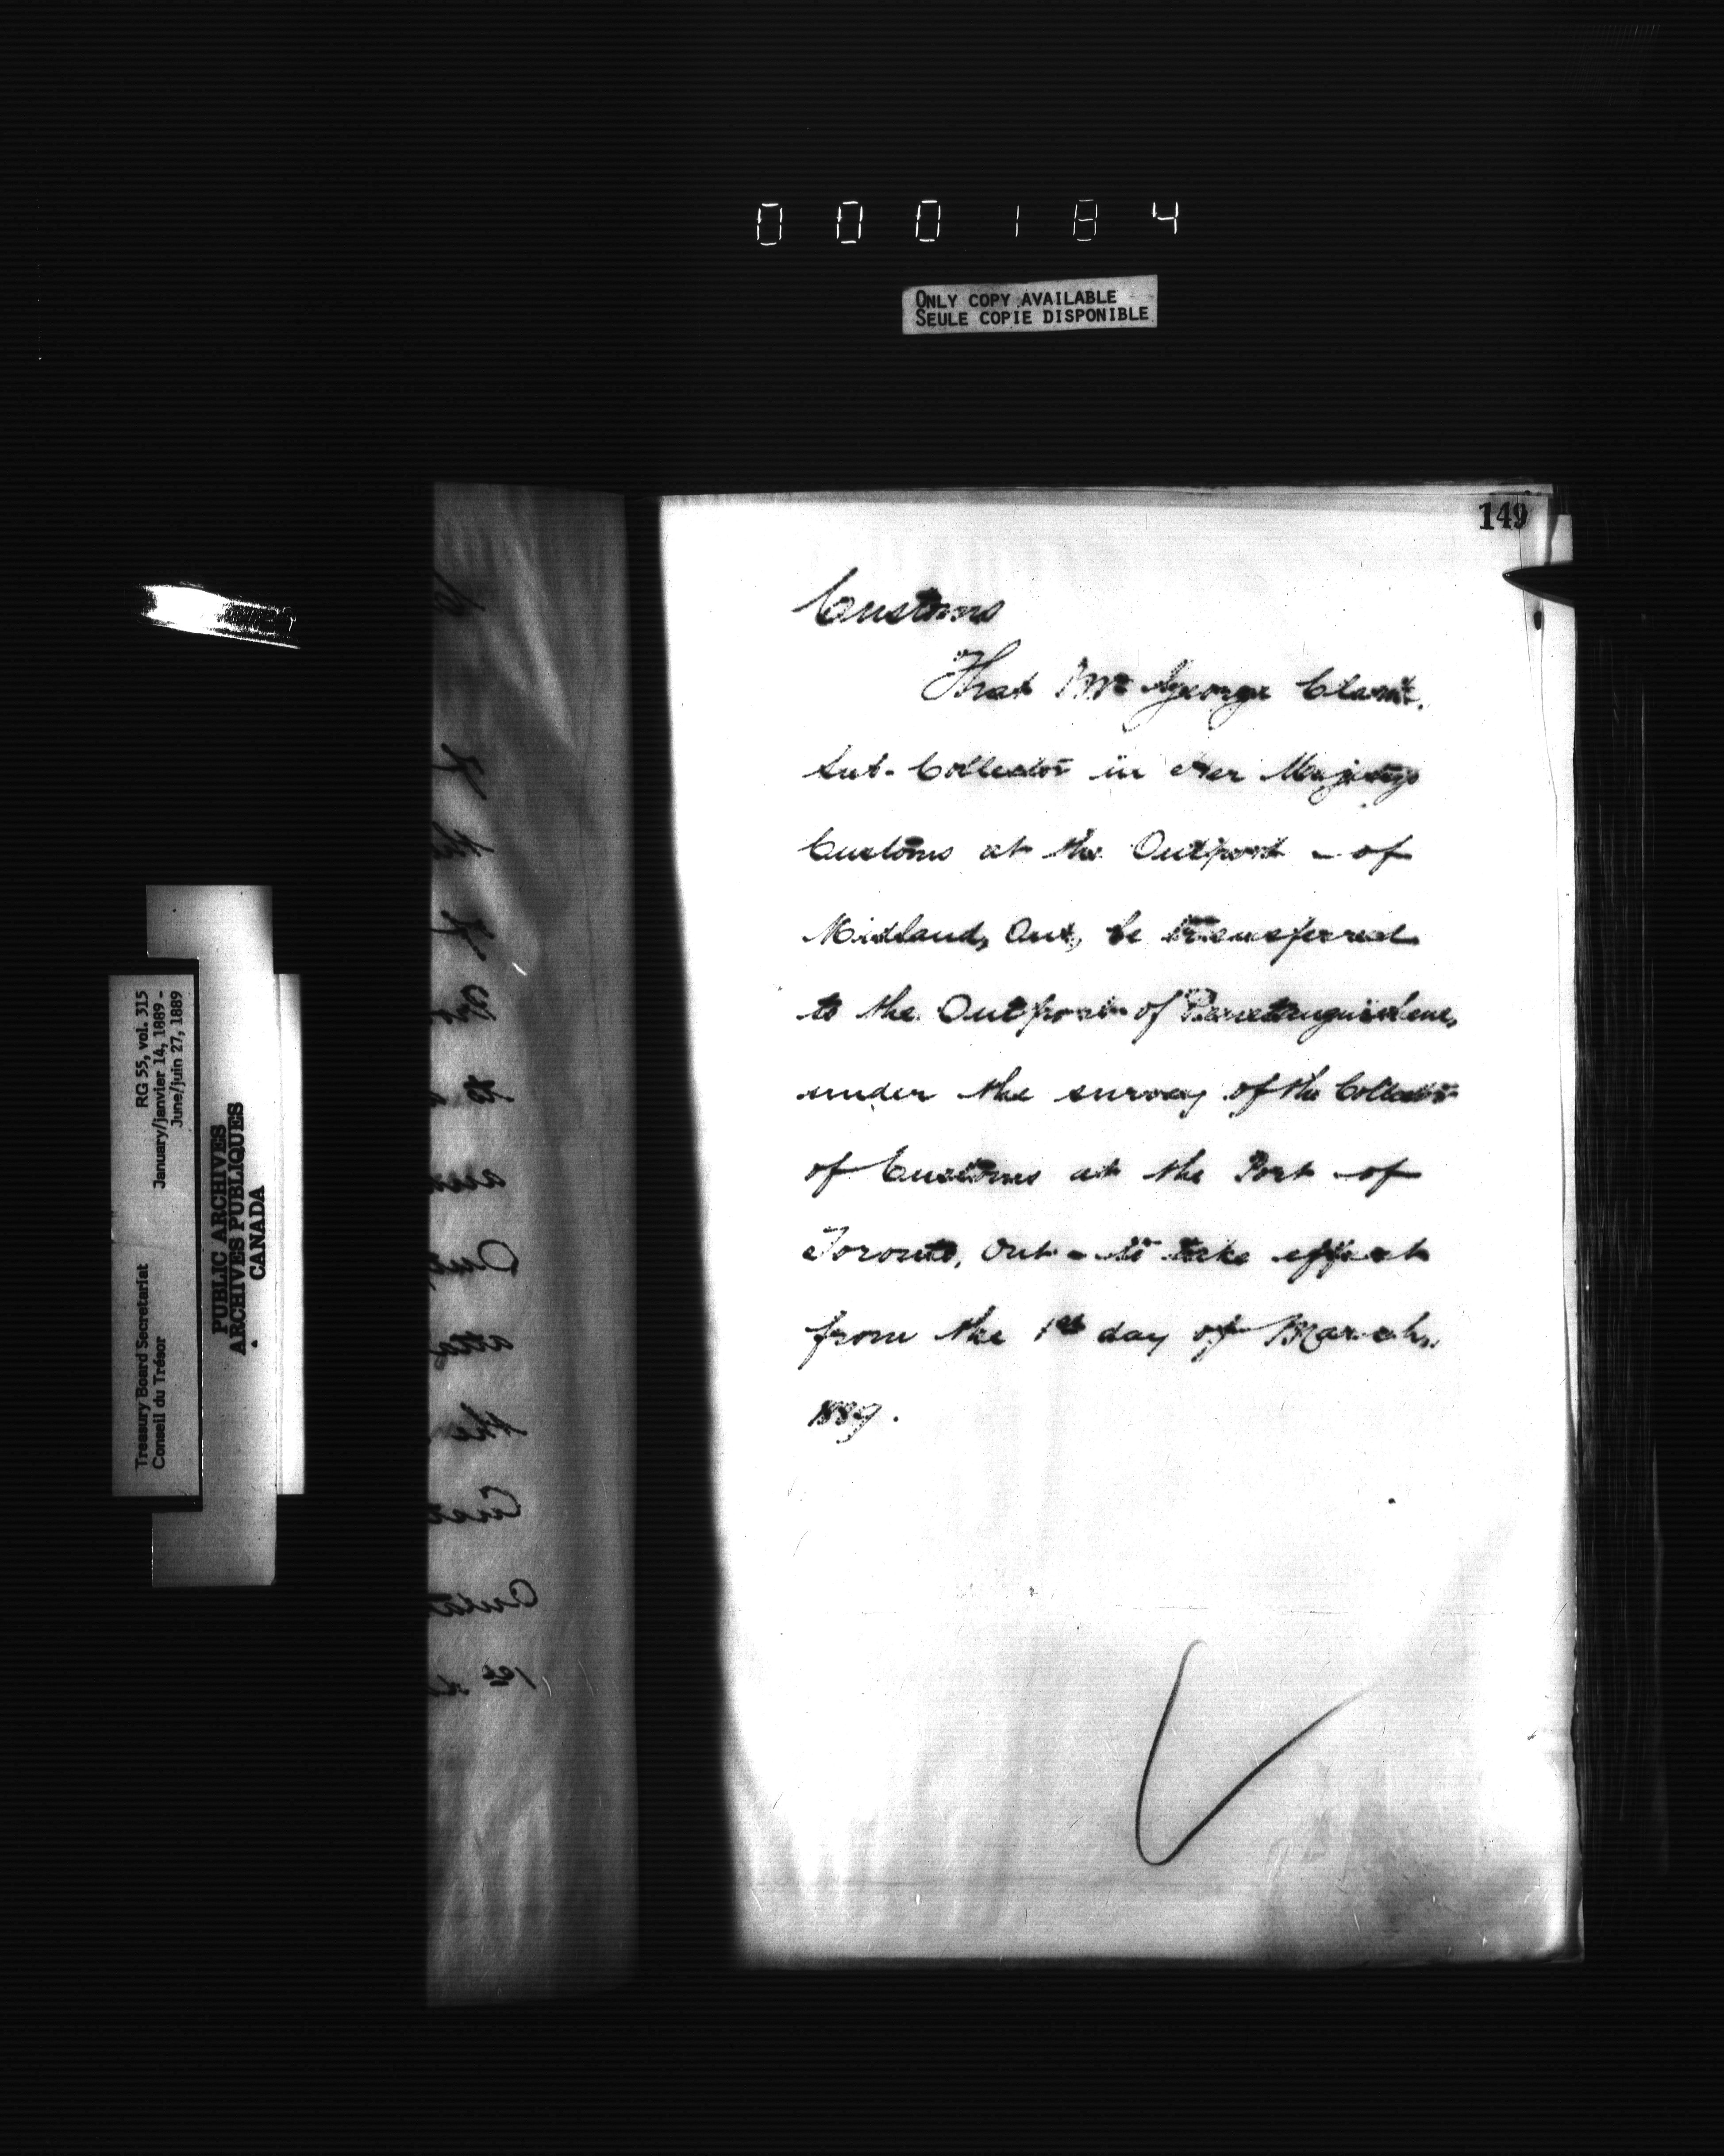 000184
ONLY COPY AVAILABLE
SEULE COPIE DISPONIBLE
149
Customs
That Mr George
Sub-Collector in Her Majestys
Customs at the Outport - of
Midland, Ont, be transferred
to the Outport of Penetanguishene,
under the survey of the Collector
of Customs at the Port of
Toronto, Ont - to take effect
from the 1st day of March,
1889.
Treasury Board Secretariat
Conseil du Trésor
RG 55, vol. 315
January/janvier 14, 1889 -
June/juin 27, 1889
PUBLIC ARCHIVES
ARCHIVES PUBLIQUES
CANADA